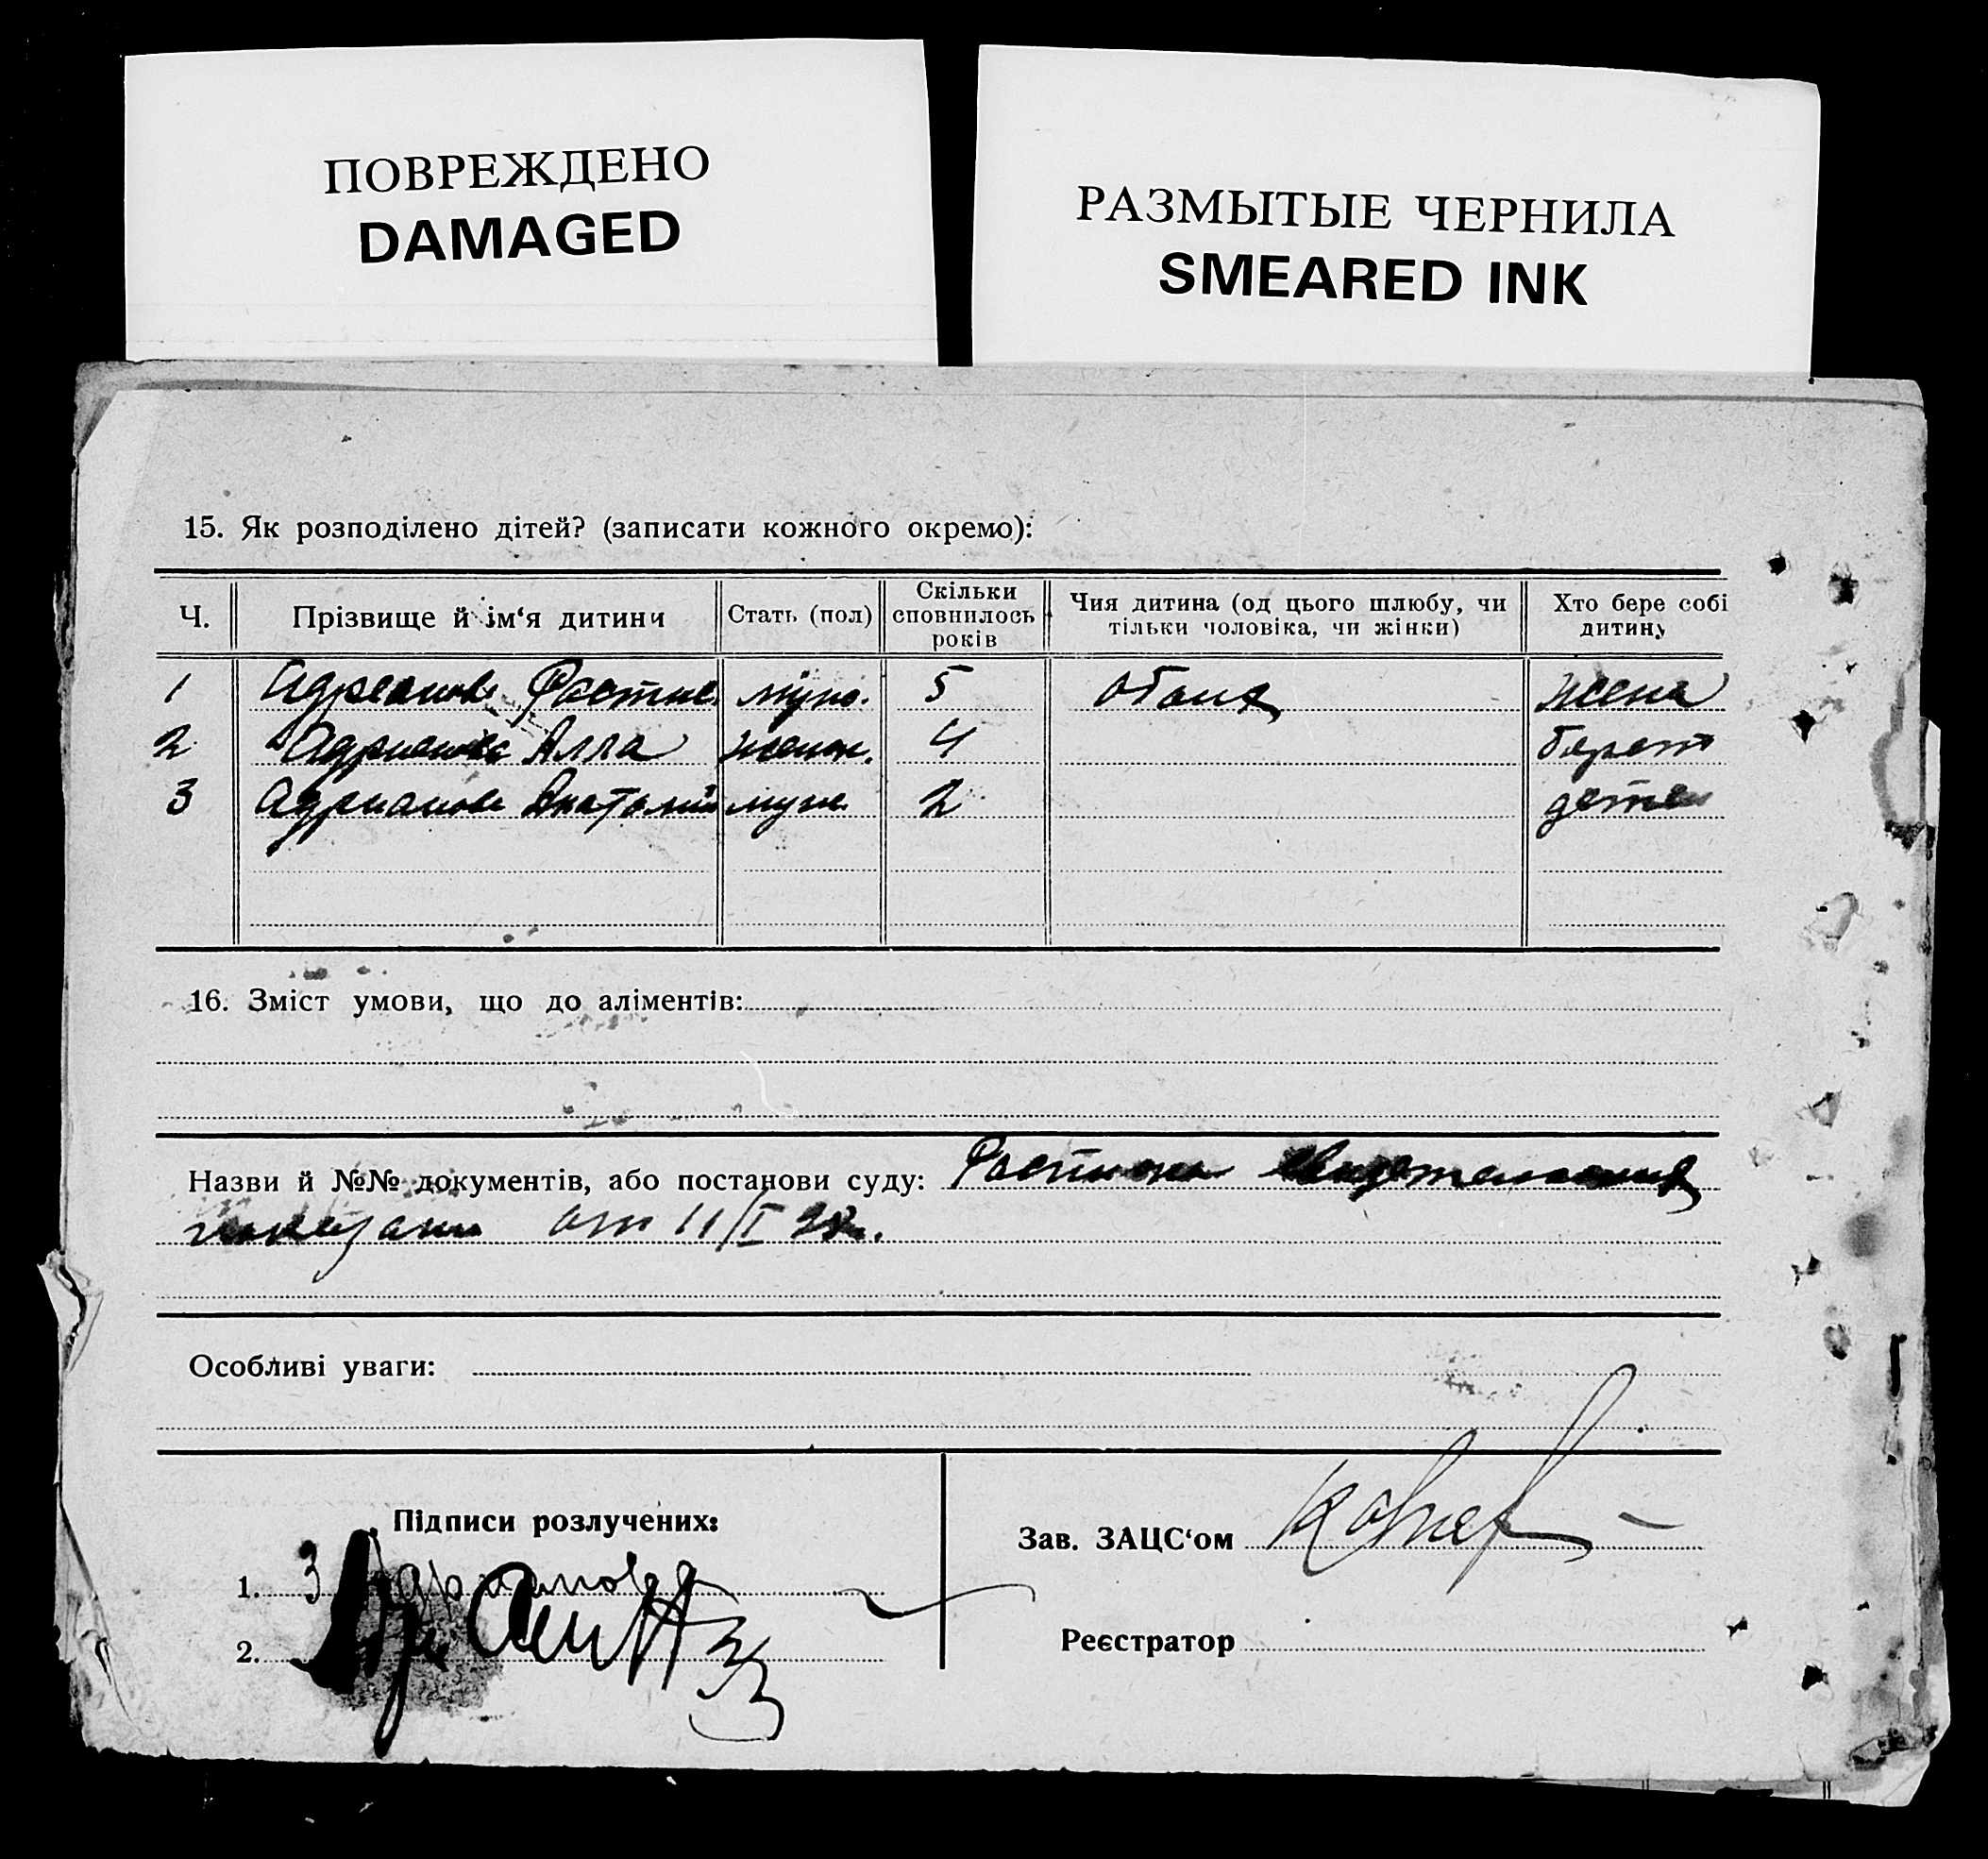 ПОВРЕЖДЕНО
DAMAGED
РАЗМЫТЫЕ ЧЕРНИЛА
SMEARED INK
15. Як розподілено дітей? (записати кожного окремо):
Ч. Прізвище й ім‘я дитини Стать (пол) Скільки сповнилось років Чия дитина (од цього шлюбу, чи тільки чоловіка, чи жінки) Хто бере собі дитину
1 5 обоих жена
2 Алла женск. 4 берет
3 Адрианов Анатолий муж. 2 детей
16. Зміст умови, що до аліментів:
Назви й №№ документів, або постанови суду:
от 11/I
Особливі уваги:
Підписи розлучених:
1. Адрианова
2.
Зав. ЗАЦС‘ом
Реєстратор